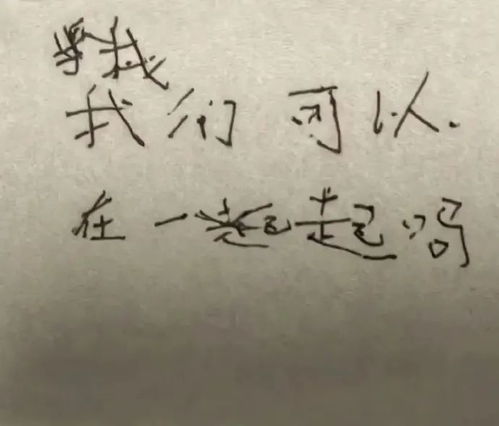 我们可以
在一起吗